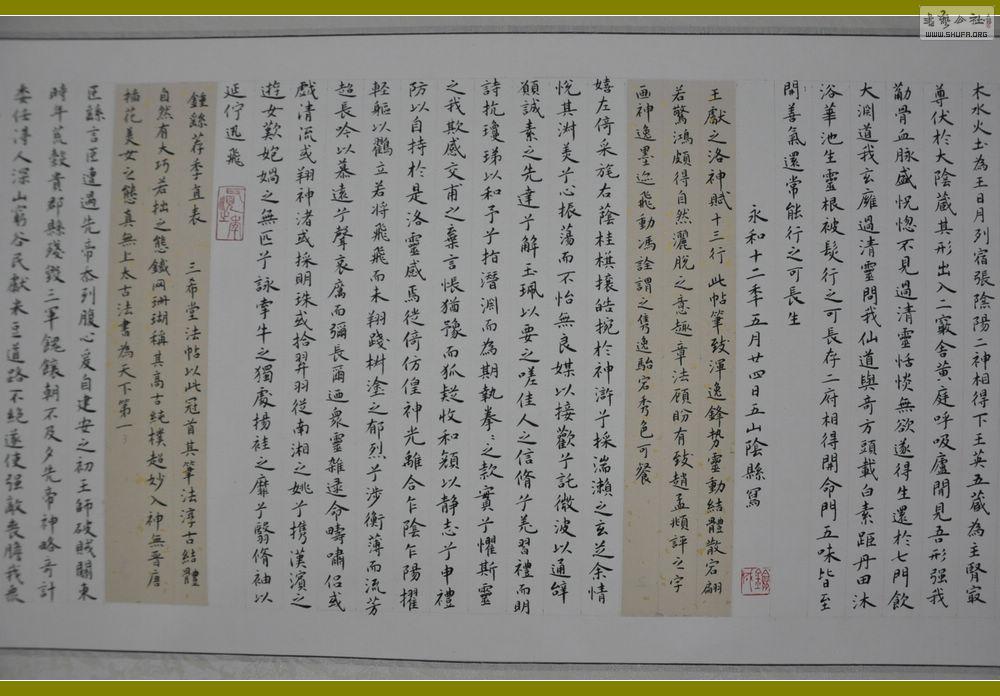 木水火土為王日月列宿張陰陽二神相得下王英五藏為主腎㝡
尊伏於大陰藏其形出入二竅舍黄庭呼吸廬間見吾形强我
葪骨血脉盛怳惚不見過清靈恬惔無欲遂得生還於七門飲
大渊道我玄廱過清靈問我仙道與奇方頭載白素距丹田沐
浴華池生靈根被髮行之可長存二府相得開命門五味皆至
開善氣還常能行之可長生
永和十二年五月廿四日五山陰縣寫
王獻之洛神賦十三行 此帖筆致渾逸鋒勢靈動結體散宕翩
若驚鴻頗得自然灑脱之意趣章法顧盼有致趙孟頫評之字
画神逸墨迹飛動馮詮謂之雋逸駘宕秀色可餐
嬉左倚采旄右蔭桂棋攘皓捥於神滸兮採湍瀨之玄芝余情
悦其淑美兮心振蕩而不怡無良媒以接歡兮託微波以通辭
願誠素之先達兮解玉珮以要之嗟佳人之信脩兮羌習禮而明
詩抗瓊珶以和予兮指潛渊而為期執拳々之款實兮懼斯靈
之我欺感交甫之棄言悵猶豫而狐疑收和顏以静志兮申禮
防以自持於是洛靈感焉徙倚仿偟神光離合乍陰乍陽擢
軽軀以鶴立若将飛飛而未翔踐椒塗之郁烈兮步衡薄而流芳
超長吟以慕遠兮聲哀厲而彌長爾迺衆靈雜遝命疇嘯侣或
戲清流或翔神渚或採明珠或拾翠羽從南湘之姚兮携漢濱之
遊女歎匏媧之無匹兮詠牽牛之獨處揚袿之靡兮翳脩袖以
延佇迅飛
鍾繇荐季直表 三希堂法帖以此冠首其筆法淳古結體
自然有大巧若拙之態鐵网珊瑚稱其高古純樸超妙入神無晋唐
插花美女之態真無上太古法書為天下第一
臣繇言臣遭遇先帝忝列腹心爰自建安之初王師破賊關東
時年荒穀貴郡縣殘毀三軍餽饟朝不及夕先帝神略奇計
委任得人深山窮谷民獻米豆道路不絶遂使强敵喪膽我衆
WWW.SHUFA.ORG